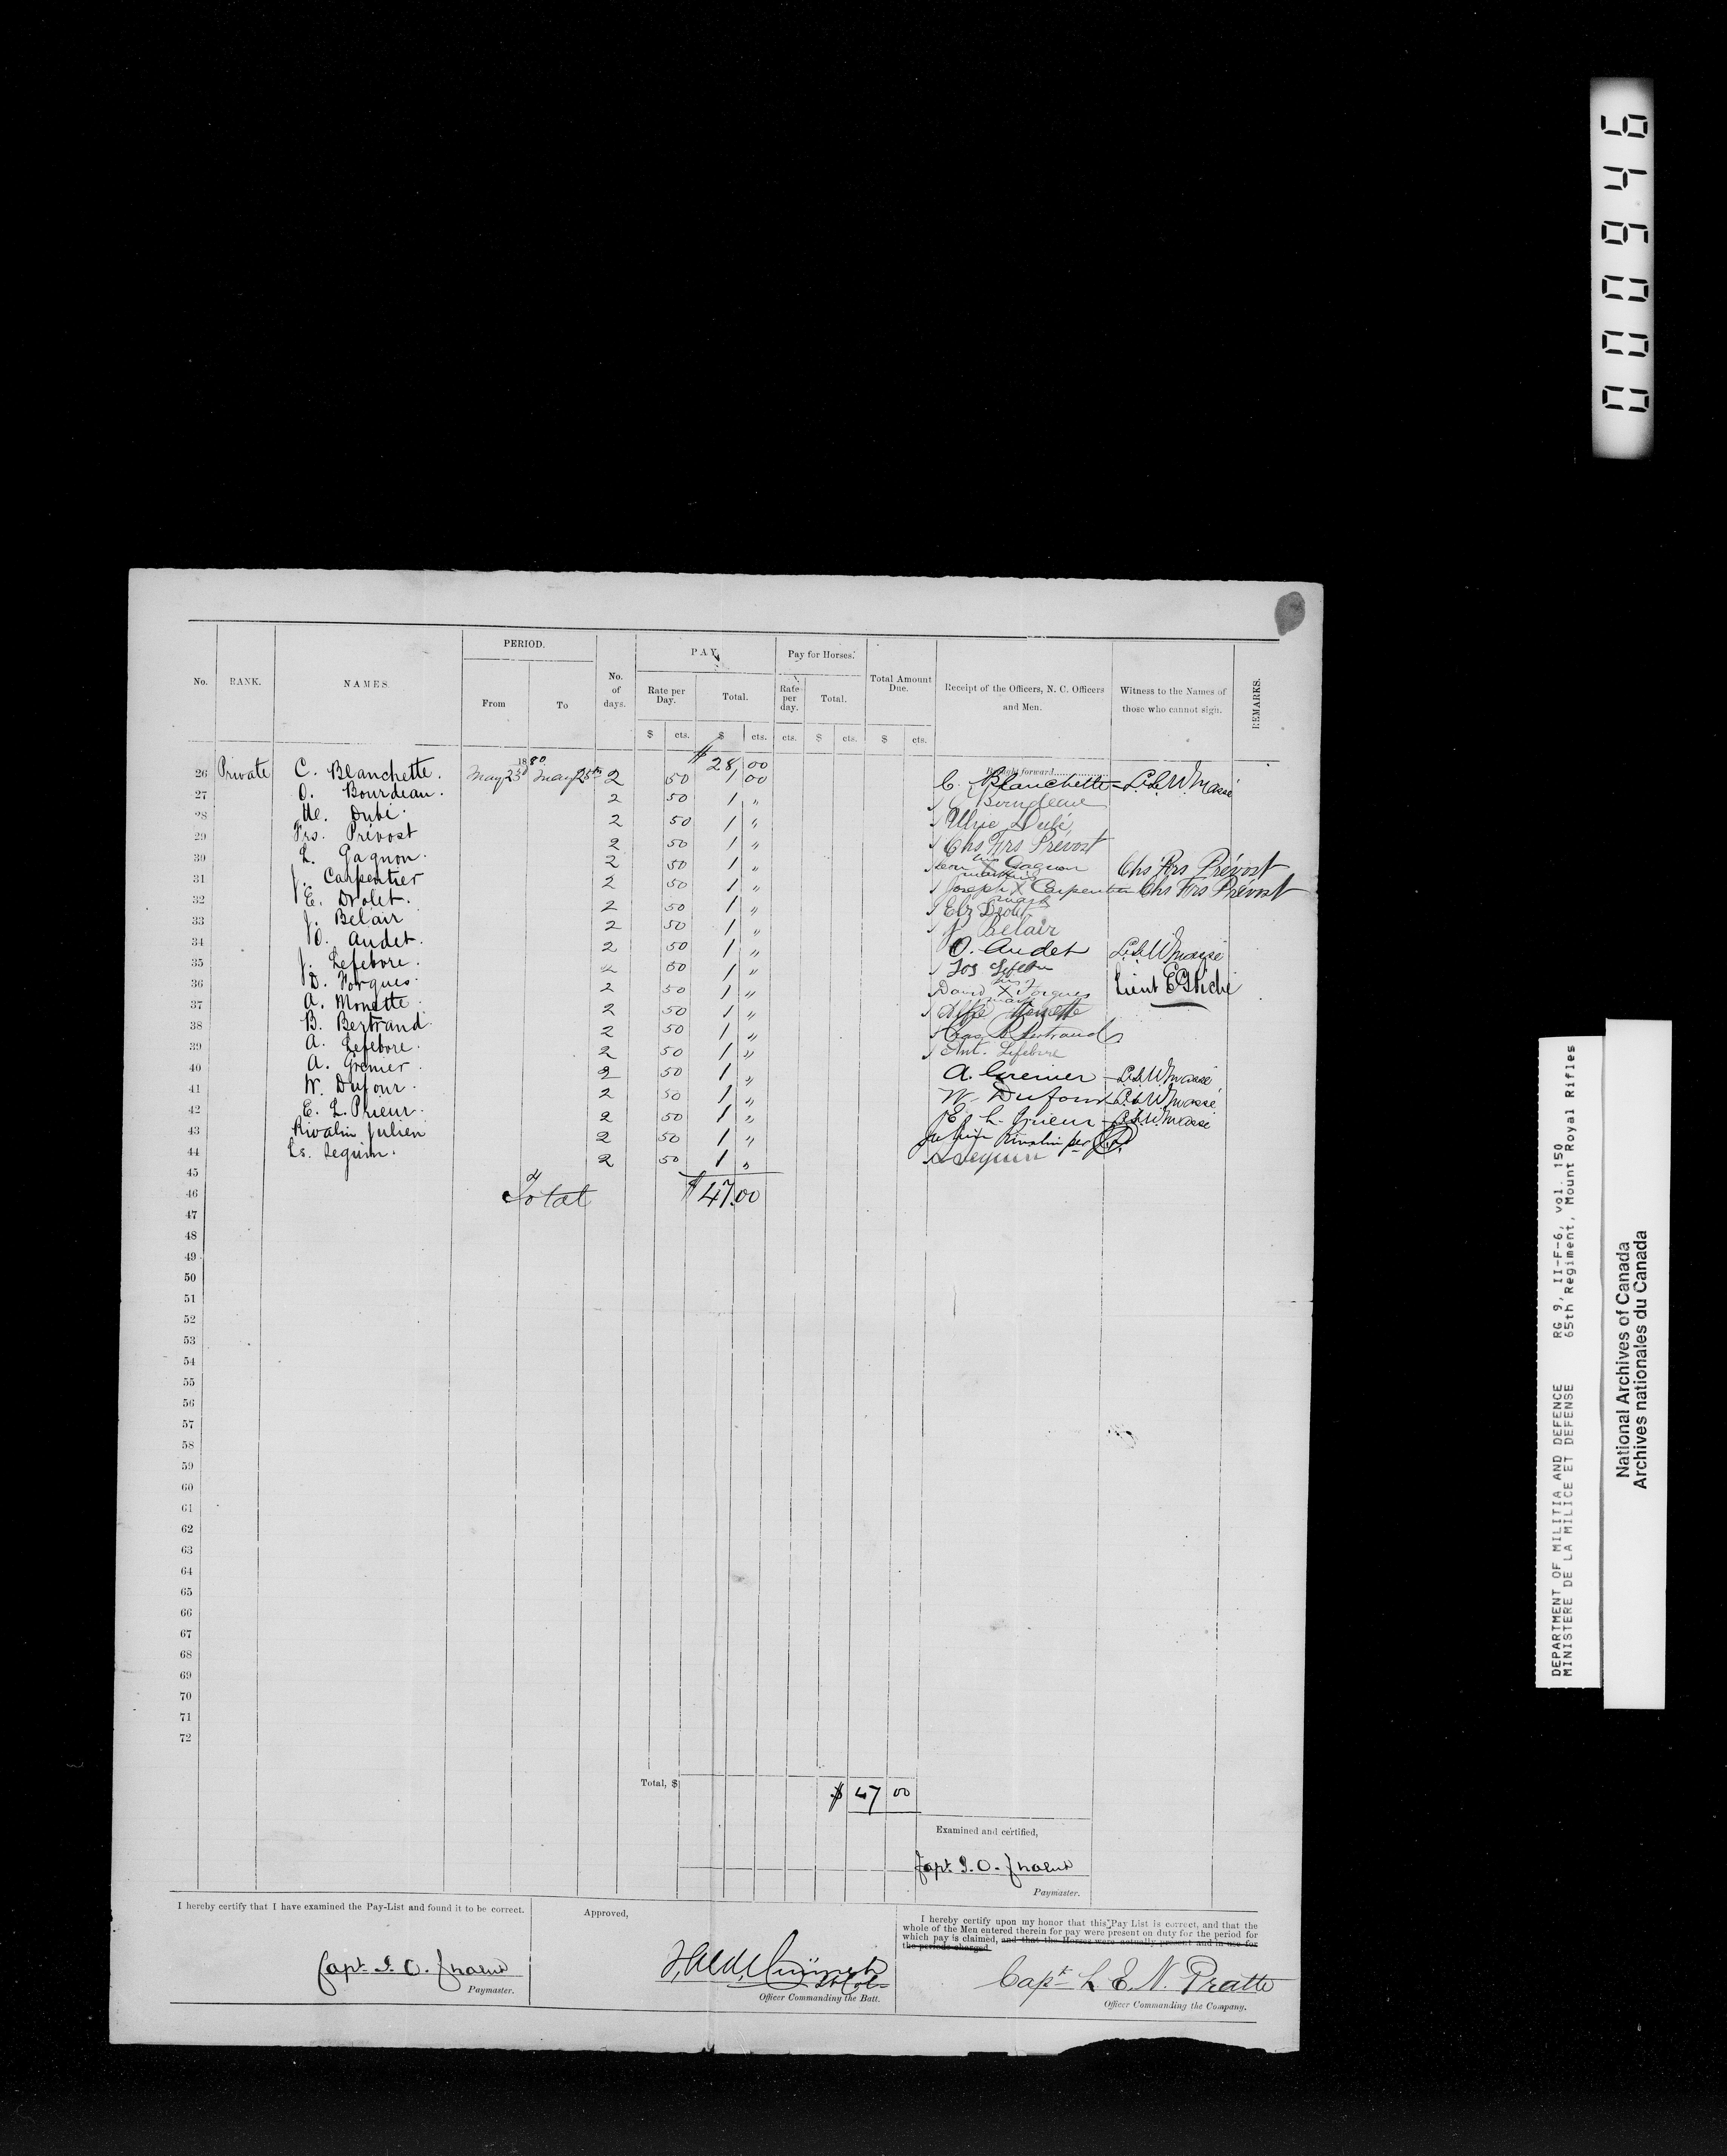 No. RANK. NAMES. PERIOD. From To No. of days. PAY. Rate per Day. $ cts. Total. $ cts. Pay for Horses. Rate per day. cts. Total. $ cts. Total Amount Due. $ cts. Receipt of the Officers, N. C. Officers and Men. Witness to the Names of those who cannot sign. REMARKS.
1880 $ 28 00 Brought forward
26 Private C. Blanchette. May 23d May 25th 2 50 1 00 C. Blanchette
27 O. Bourdeau. 2 50 1 " Bourdeau
28 Dubé. 2 50 1 " Ulric Dubé
29 Frs. Prévost 2 50 1 " Chs Frs Prévost
30 L. Gagnon. 2 50 1 " his X mark Gagnon Chs Frs Prévost
31 J. Carpentier 2 50 1 " Joseph his X mark Carpentier Chs Frs Prévost
32 E. Drolet. 2 50 1 "
33 J. Belair 2 50 1 " J. Belair
34 O. Audet. 2 50 1 " O. Audet
35 J. Lefebvre. 2 50 1 " Jos
36 D. Forgues. 2 50 1 " David his X mark Forgues Lieut
37 A. Monette. 2 50 1 " Monette
38 B. Bertrand. 2 50 1 " Bertrand
39 A. Lefebvre. 2 50 1 " Ant. Lefebvre
40 A. Grenier. 2 50 1 " A. Grenier
41 W. Dufour. 2 50 1 " W. Dufour
42 E. L. Prieur. 2 50 1 " E. L. Prieur
43 Rivalin Julien 2 50 1 " Julien Rivalin per
44 Ls. Seguin. 2 50 1 " Seguin
45
46 Total $47.00
47
48
49
50
51
52
53
54
55
56
57
58
59
60
61
62
63
64
65
66
67
68
69
70
71
72
Total, $ $ 47 00
Examined and certified,
Capt.
Paymaster.
I hereby certify that I have examined the Pay-List and found it to be correct.
Capt.
Paymaster.
Approved,
Lt Col
Officer Commanding the Batt.
I hereby certify upon my honor that this Pay List is correct, and that the
whole of the Men entered therein for pay were present on duty for the period for
which pay is claimed, and that the Horses were actually present and in use for
the periods charged.
Capt L E. N. Pratte
Officer Commanding the Company.
000946
DEPARTMENT OF MILITIA AND DEFENCE RG 9, II-F-6, vol. 150
MINISTERE DE LA MILICE ET DEFENSE 65th Regiment, Mount Royal Rifles
National Archives of Canada
Archives nationales du Canada